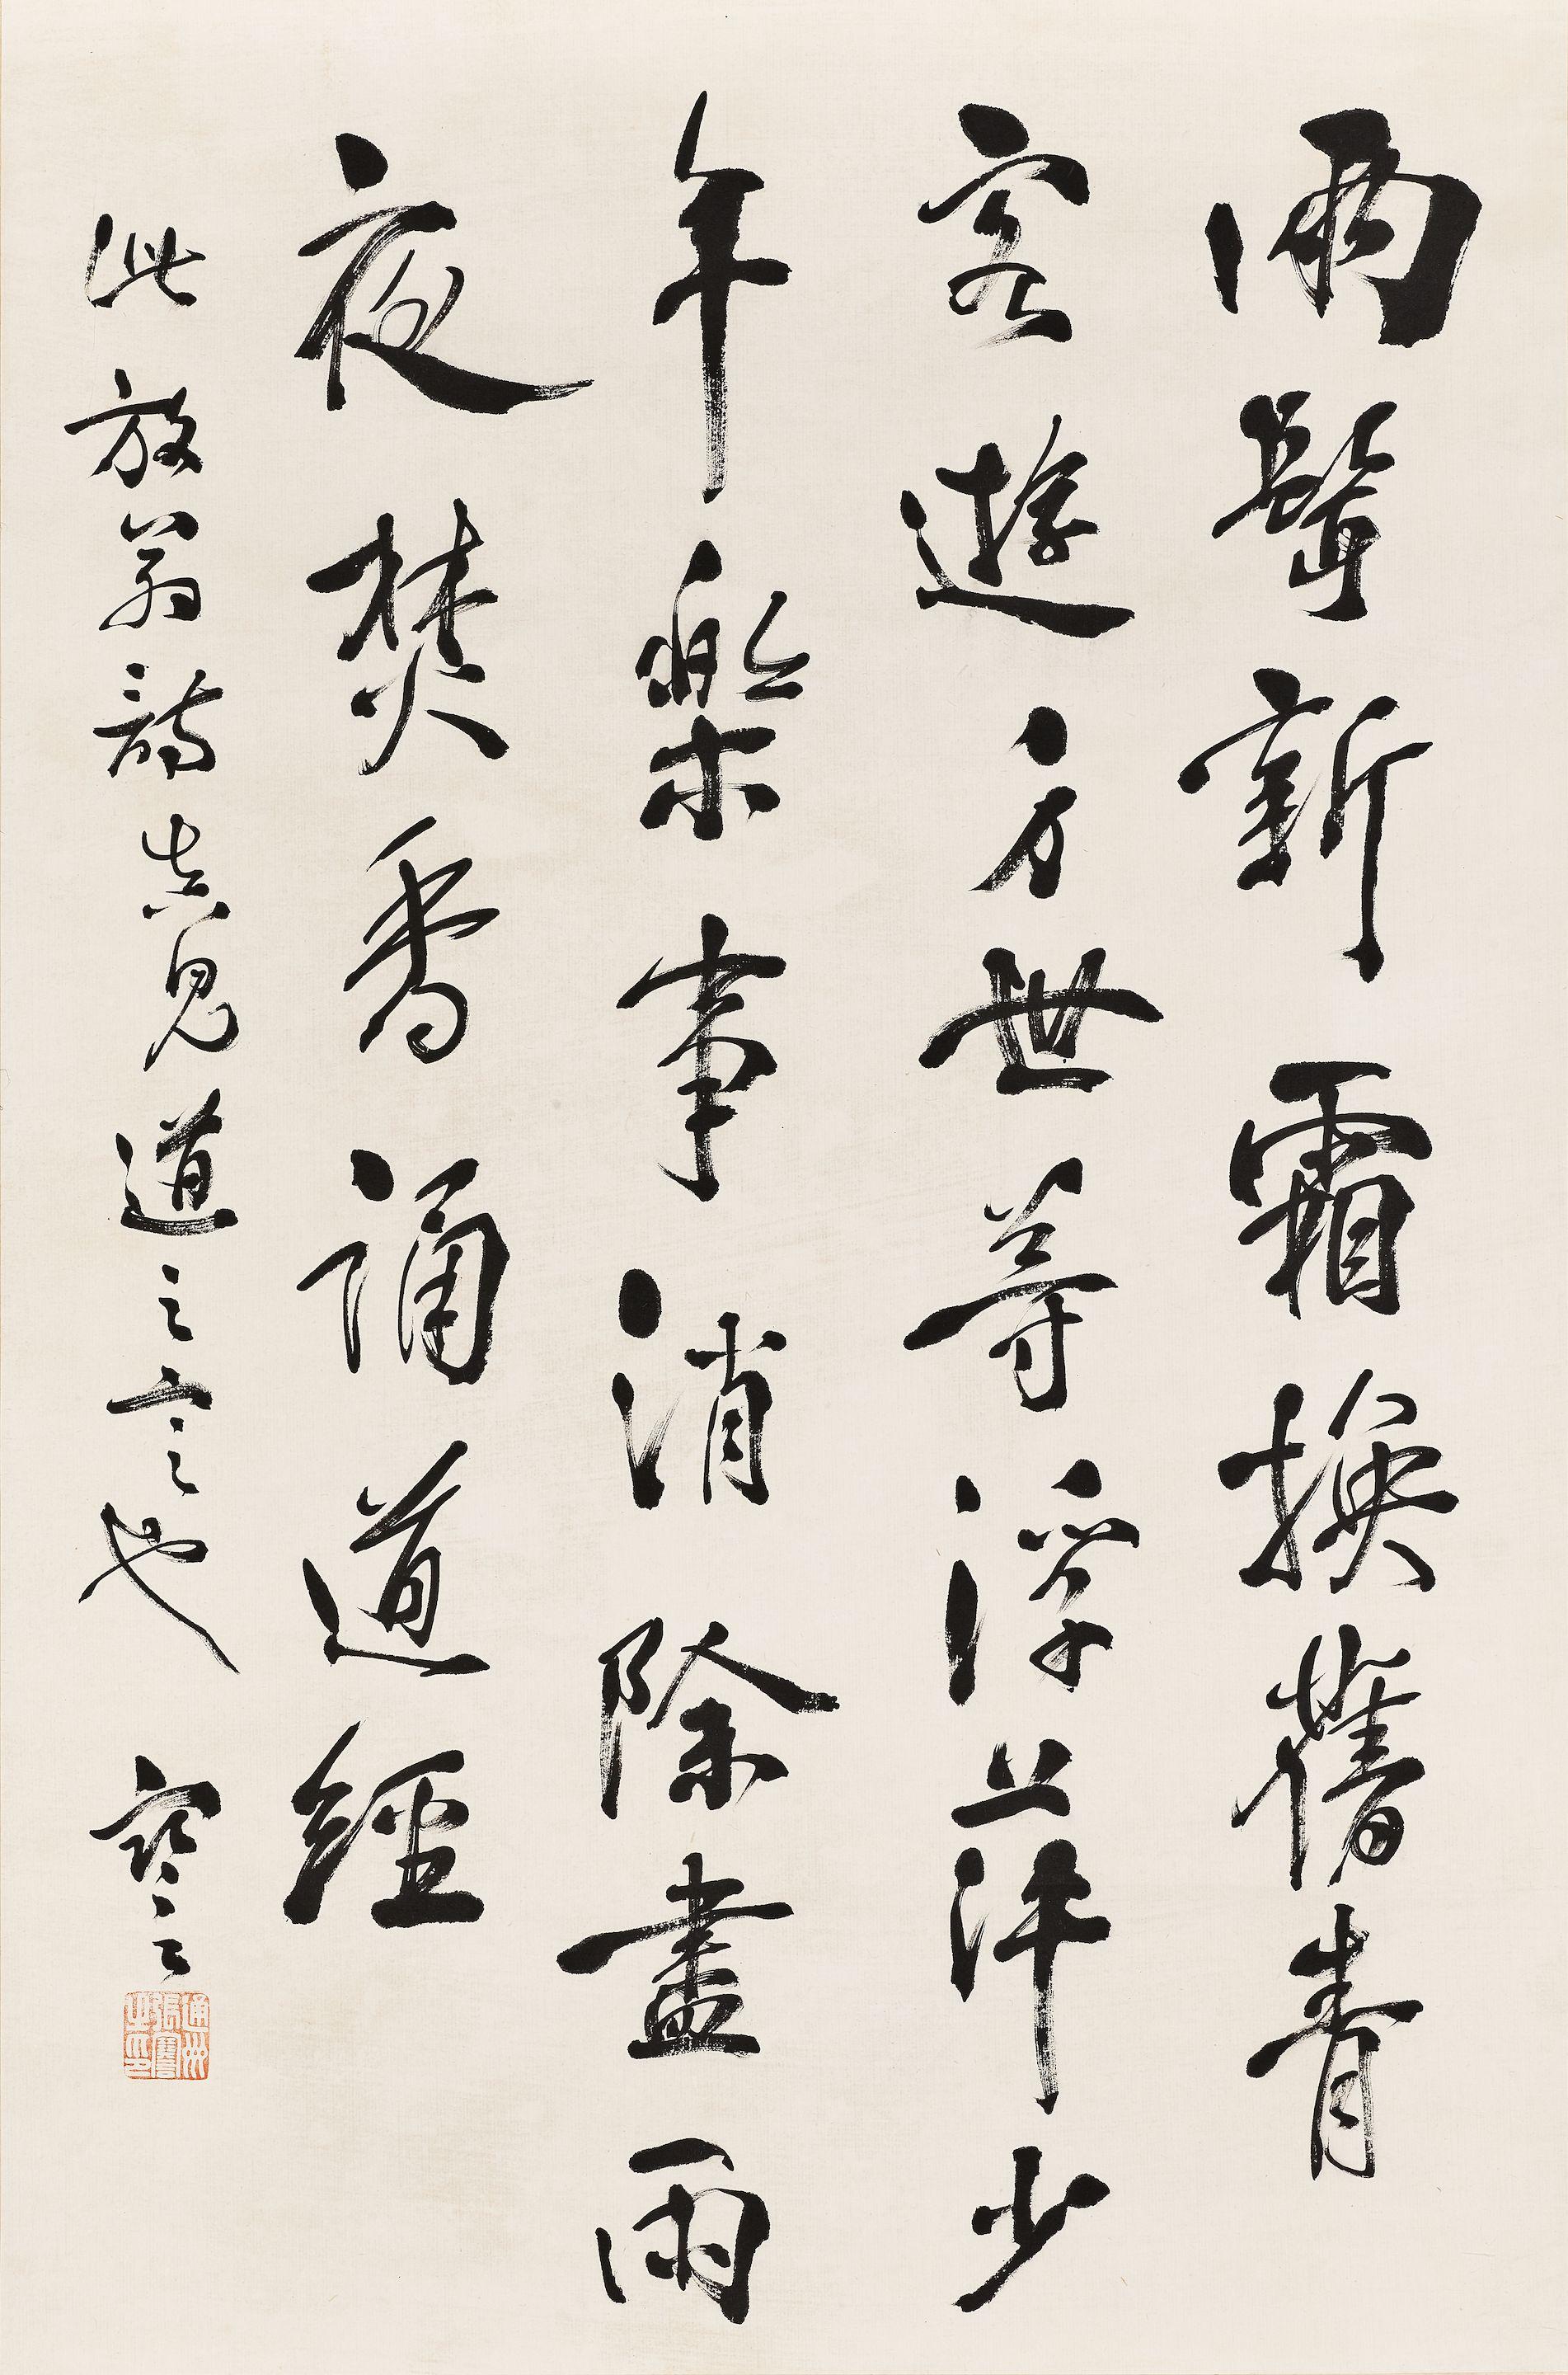 兩鬢新霜換舊青
客遊方世等浮萍少
年樂事消除盡雨
夜焚香誦道經
此放翁詩真見道之言也 謇
通州張謇之印